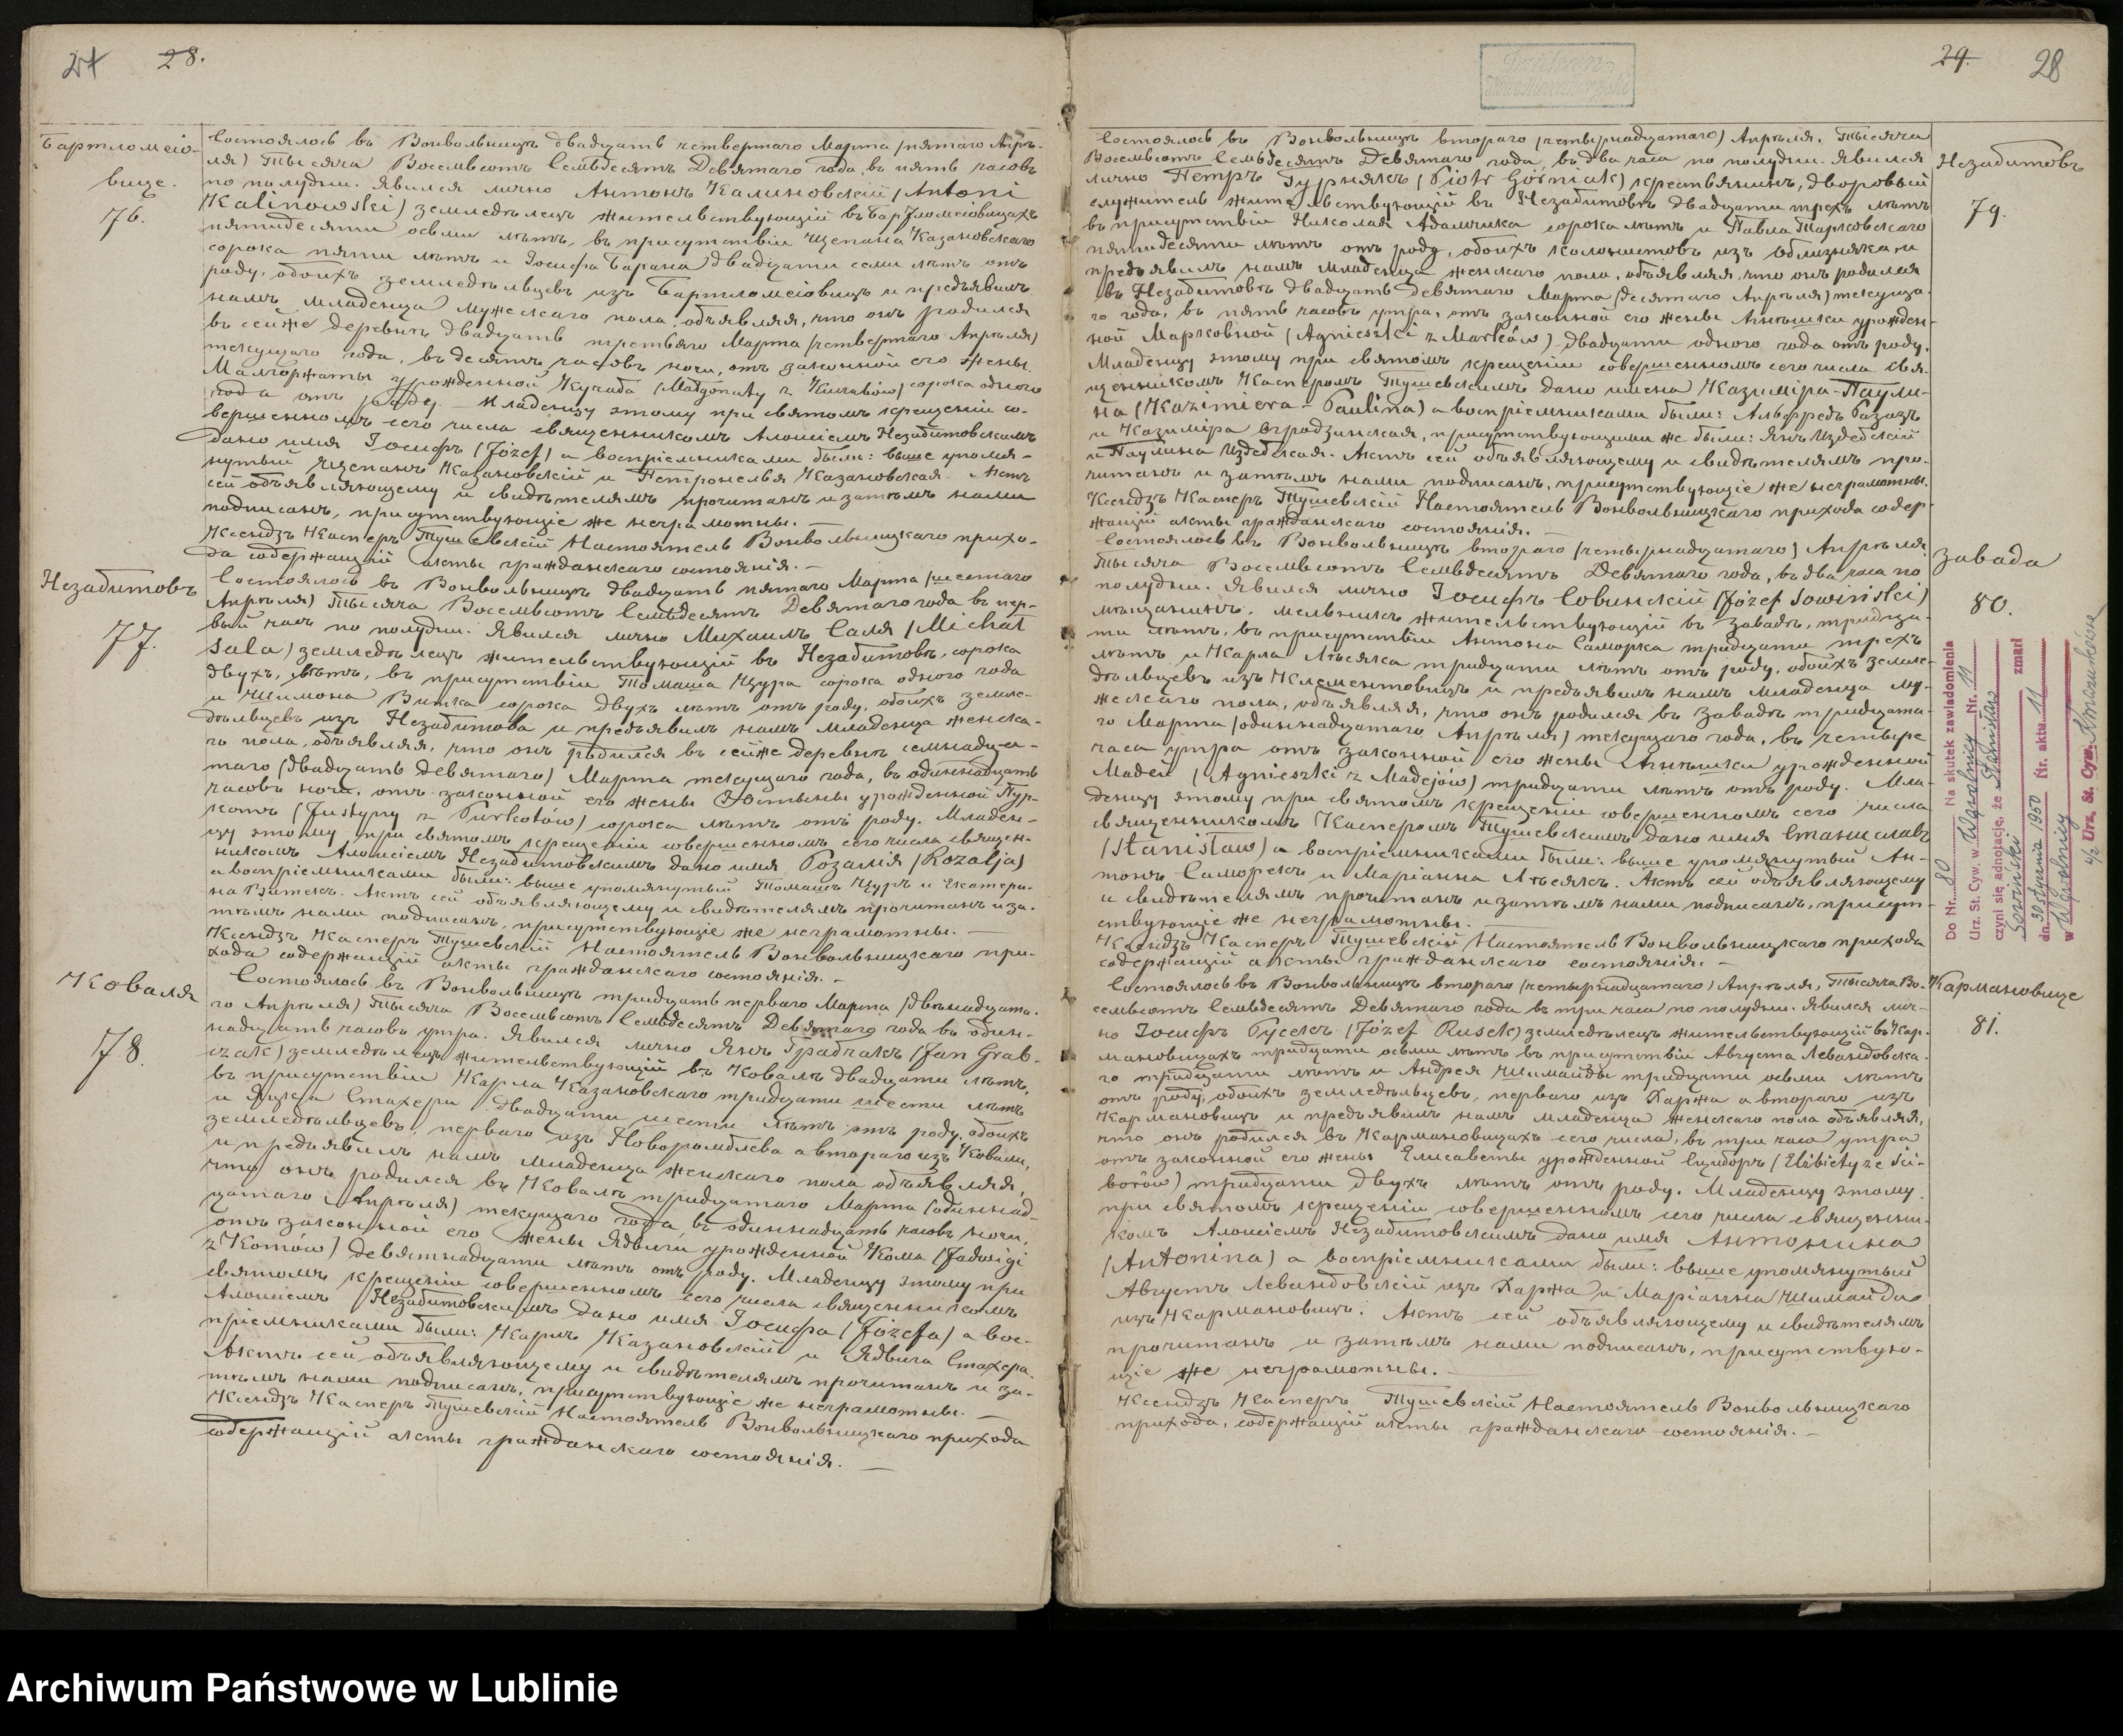 24 28.
Бартломеіо-
вице.
76.
Состоялось въ Вонвольницѣ двадцать четвертаго Марта (пятаго Апрѣ-
ля) Тысяча Восемьсотъ Семьдесятъ Девятаго года, въ пять часовъ
по полудни. Явился лично Антонъ Калиновскій (Antoni
Kalinowski) земледѣлецъ жительствующій въ Бартломеіовицахъ
пятидесяти осьми лѣтъ, въ присутствіи Щепана Казановскаго
сорока пяти лѣтъ и Іосифа Барана двадцати семи лѣтъ отъ
роду, обоихъ земледѣльцевъ изъ Бартломеіовицъ и предъявилъ
намъ младенца мужескаго пола, объявляя, что онъ родился
въ сейже деревнѣ двадцать третьяго Марта (четвертаго Апрѣля)
текущаго года, въ десять часовъ ночи, отъ законной его жены
Малгоржаты урожденной Кураба (Małgorzaty z Kurabów) сорока одного
года отъ роду. — Младенцу этому при святомъ крещеніи со-
вершенномъ сего числа священникомъ Алоисіемъ Незабитовскимъ
дано имя Іосифъ (Józef) а воспріемниками были: выше упомя-
нутый Щепанъ Казановскій и Петронелья Казановская. Актъ
сей объявляющему и свидѣтелямъ прочитанъ и затѣмъ нами
подписанъ, присутствующіе же неграмотны. —
Ксендзъ Касперъ Тушевскій Настоятель Вонвольницкаго прихо-
да содержащій акты гражданскаго состоянія. —
Незабитовъ
77.
Состоялось въ Вонвольницѣ двадцать пятаго Марта (шестаго
Апрѣля) Тысяча Восемьсотъ Семьдесятъ Девятаго года въ пер-
вый часъ по полудни. Явился лично Михаилъ Саля (Michał
Sala) земледѣлецъ жительствующій въ Незабитовѣ, сорока
двухъ, лѣтъ, въ присутствіи Томаша Щура сорока одного года
и Шимона Витка сорока двухъ лѣтъ отъ роду, обоихъ земле-
дѣльцевъ изъ Незабитова и предъявилъ намъ младенца женска-
го пола, объявляя, что онъ родился въ сейже деревнѣ семнадца-
таго (двадцать девятаго) Марта текущаго года, въ одиннадцать
часовъ ночи, отъ законной его жены Юстыны урожденной Пур-
котъ (Justyny z Purkotów) сорока лѣтъ отъ роду. Младен-
цу этому при святомъ крещеніи совершенномъ сего числа священ-
никомъ Алоисіемъ Незабитовскимъ дано имя Розалія (Rozalja)
а воспріемниками были: выше упомянутый Томашъ Щуръ и Екатери-
на Витекъ. Актъ сей объявляющему и свидѣтелямъ прочитанъ и за-
тѣмъ нами подписанъ, присутствующіе же неграмотны. —
Ксендзъ Касперъ Тушевскій Настоятель Вонвольницкаго при-
хода содержащій акты гражданскаго состоянія. —
Коваля
78.
Состоялось въ Вонвольницѣ тридцать перваго Марта (двѣнадцата-
го Апрѣля) Тысяча Восемьсотъ Семьдесятъ Девятаго года въ один-
надцать часовъ утра. Явился лично Янъ Грабчакъ (Jan Grab-
czak) земледѣлецъ жительствующій въ Ковалѣ двадцати лѣтъ,
въ присутствіи Карла Казановскаго тридцати шести лѣтъ
и Яцка Стахеры двадцати шести лѣтъ отъ роду, обоихъ
земледѣльцевъ, перваго изъ Новоромблева а втораго изъ Ковали,
и предъявилъ намъ младенца женскаго пола объявляя,
что онъ родился въ Ковалѣ тридцатаго Марта (одиннад-
цатаго Апрѣля) текущаго года въ одиннадцать часовъ ночи,
отъ законной его жены Ядвиги урожденной Кома (Jadwigi
z Komów) девятнадцати лѣтъ отъ роду. Младенцу этому при
святомъ крещеніи совершенномъ сего числа священникомъ
Алоисіемъ Незабитовскимъ дано имя Іосифа (Józefa) а вос-
пріемниками были: Карлъ Казановскій и Ядвига Стахера.
Актъ сей объявляющему и свидѣтелямъ прочитанъ и за-
тѣмъ нами подписанъ, присутствующіе же неграмотны. —
Ксендзъ Касперъ Тушевскій Настоятель Вонвольницкаго прихода
содержащій акты гражданскаго состоянія. —
29. 28
Незабитовъ
79.
Состоялось въ Вонвольницѣ втораго (четырнадцатаго) Апрѣля, Тысяча
Восемьсотъ Семьдесятъ Девятаго года, въ два часа по полудни. Явился
лично Петръ Гурнякъ (Piotr Górniak) крестьянинъ, дворовый
служитель жительствующій въ Незабитовѣ двадцати трехъ лѣтъ
въ присутствіи Николая Адамчика сорока лѣтъ и Павла Тарковскаго
пятидесяти лѣтъ отъ роду, обоихъ колонистовъ изъ Облизняка, и
предъявилъ намъ младенца женскаго пола, объявляя, что онъ родился
въ Незабитовѣ двадцать девятаго Марта (десятаго Апрѣля) текуща-
го года, въ пять часовъ утра, отъ законной его жены Агнѣшки урожден-
ной Марковной (Agnieszki z Marków) двадцати одного года отъ роду.
Младенцу этому при святомъ крещеніи совершенномъ сего числа свя-
щенникомъ Касперомъ Тушевскимъ дано имена Казиміра-Паули-
на (Kazimiera - Paulina) а воспріемниками были: Альфредъ
и Казиміра присутствующими же были: Янъ Издебскій
и Паулина Издебская. Актъ сей объявляющему и свидѣтелямъ про-
читанъ и затѣмъ нами подписанъ, присутствующіе же неграмотны.
Ксендзъ Касперъ Тушевскій Настоятель Вонвольницкаго прихода содер-
жащій акты гражданскаго состоянія. —
Забада
80.
Состоялось въ Вонвольницѣ втораго (четырнадцатаго) Апрѣля
Тысяча Восемьсотъ Семьдесятъ Девятаго года, въ два часа по
полудни. Явился лично Іосифъ Совинскій (Józef Sowiński)
мѣщанинъ, мельникъ жительствующій въ Забадѣ, тридца-
ти лѣтъ, въ присутствіи Антона Саморка тридцати трехъ
лѣтъ и Карла Лѣсяка тридцати лѣтъ отъ роду, обоихъ земле-
дѣльцевъ изъ Клементовицъ и предъявилъ намъ младенца му-
жескаго пола, объявляя, что онъ родился въ Забадѣ тридцата-
го Марта (одиннадцатаго Апрѣля) текущаго года, въ четыре
часа утра отъ законной его жены Агнѣшки урожденной
Мадей (Agnieszki z Madejów) тридцати лѣтъ отъ роду. Мла-
денцу этому при святомъ крещеніи совершенномъ сего числа
священникомъ Касперомъ Тушевскимъ дано имя Станиславъ
(Stanisław) а воспріемниками были: выше упомянутый Ан-
тонъ Саморекъ и Маріанна Лѣсякъ. Актъ сей объявляющему
и свидѣтелямъ прочитанъ и затѣмъ нами подписанъ, присут-
ствующіе же неграмотны.
Ксендзъ Касперъ Тушевскій Настоятель Вонвольницкаго прихода
содержащій акты гражданскаго состоянія. —
Do Nr. 80 Na skutek zawiadomienia
Urz. St. Cyw. w Wąwolnicy Nr. 11
czyni się adnotację, że Stanisław
Sowiński zmarł
dn. 30 stycznia 1950 Nr. aktu 11
w Wąwolnicy
Urz. St. Cyw.
Кармановице
81.
Состоялось въ Вонвольницѣ втораго (четырнадцатаго) Апрѣля, Тысяча Во-
семьсотъ Семьдесятъ Девятаго года въ три часа по полудни. Явился лич-
но Іосифъ Русекъ (Józef Rusek) земледѣлецъ жительствующій въ Кар-
мановицахъ тридцати осьми лѣтъ въ присутствіи Августа Левандовска-
го тридцати лѣтъ и Андрея Шимайды тридцати осьми лѣтъ
отъ роду, обоихъ земледѣльцевъ, перваго изъ Харжа а втораго изъ
Кармановицъ и предъявилъ намъ младенца женскаго пола объявляя,
что онъ родился въ Кармановицахъ сего числа, въ три часа утра
отъ законной его жены Елисаветы урожденной Сциборъ (Elżbiety ze Ści-
borów) тридцати двухъ лѣтъ отъ роду. Младенцу этому
при святомъ крещеніи совершенномъ сего числа священни-
комъ Алоисіемъ Незабитовскимъ дано имя Антонина
(Antonina) а воспріемниками были: выше упомянутый
Августъ Левандовскій изъ Харжа и Маріанна Шимайда
изъ Кармановицъ. Актъ сей объявляющему и свидѣтелямъ
прочитанъ и затѣмъ нами подписанъ, присутствую-
щіе же неграмотны. —
Ксендзъ Касперъ Тушевскій Настоятель Вонвольницкаго
прихода, содержащій акты гражданскаго состоянія. —
Archiwum Państwowe w Lublinie